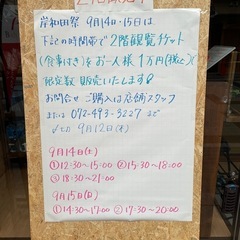 岸和田祭 9月14日・15日は
下記の時間帯で2階観覧チケット
(食事付き)をお一人様1万円(税込)で
限定数 販売いたします!
お問合せ ご購入は店舗スタッフ
または 072-493-3227 まで
〆切 9月12日(木)
9月14日(土)
①12:30~15:00 ②15:30~18:00
③18:30~21:00
9月15日(日)
①14:30~17:00 ②17:30~20:00